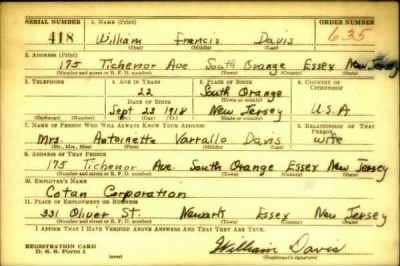 SERIAL NUMBER 1. NAME (Print) ORDER NUMBER
418 William Francis Davis 635
(First) (Middle) (Last)
2. ADDRESS (Print)
175 Tichenor Ave South Orange Essex New Jersey
(Number and street or R. F. D. number) (Town) (County) (State)
3. TELEPHONE 4. AGE IN YEARS 5. PLACE OF BIRTH 6. COUNTRY OF CITIZENSHIP
22 South Orange
DATE OF BIRTH (Town or county)
Sept 23 1918 New Jersey U.S.A
(Mo.) (Day) (Yr.) (State or country)
7. NAME OF PERSON WHO WILL ALWAYS KNOW YOUR ADDRESS 8. RELATIONSHIP OF THAT PERSON
Mrs. Antoinette Varrallo Davis wife
(Mr., Mrs., Miss) (First) (Middle) (Last)
9. ADDRESS OF THAT PERSON
175 Tichenor Ave. South Orange Essex New Jersey
(Number and street or R. F. D. number) (Town) (County) (State)
10. EMPLOYER'S NAME
Cotan Corporation
11. PLACE OF EMPLOYMENT OR BUSINESS
331 Oliver St. Newark Essex New Jersey
(Number and street or R. F. D. number) (Town) (County) (State)
I AFFIRM THAT I HAVE VERIFIED ABOVE ANSWERS AND THAT THEY ARE TRUE.
REGISTRATION CARD William Davis
D. S. S. Form 1 (over) (Registrant's signature)